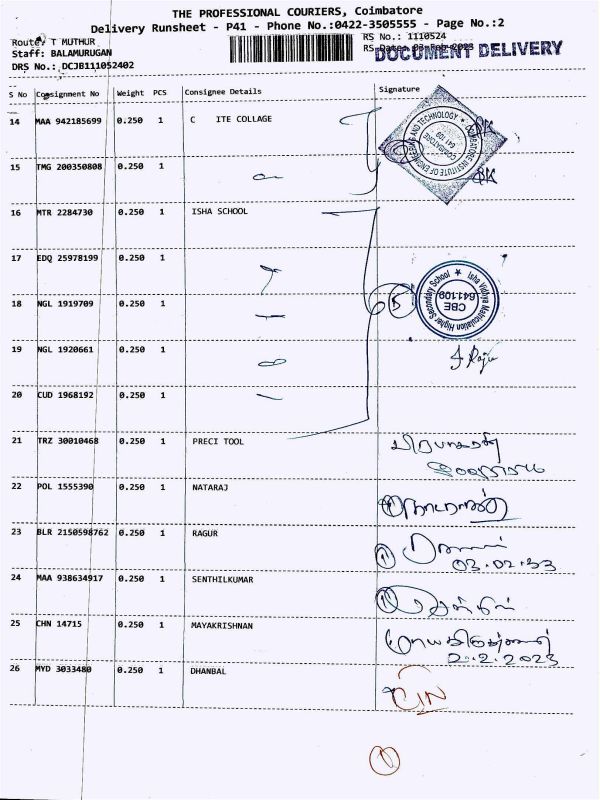 THE PROFESSIONAL COURIERS, Coimbatore
Delivery Runsheet - P41 - Phone No.:0422-3505555 - Page No.:2
Route: T MUTHUR
RS No.: 1110524
Staff: BALAMURUGAN
RS Date: 03-Feb-2023
DOCUMENT DELIVERY
DRS No.: DCJB111052402
S No Consignment No Weight PCS Consignee Details Signature
14 MAA 942185699 0.250 1 C ITE COLLAGE
COIMBATORE INSTITUTE OF ENGINEERING AND TECHNOLOGY ★ COIMBATORE 641 109
15 TMG 200350808 0.250 1
16 MTR 2284730 0.250 1 ISHA SCHOOL
17 EDQ 25978199 0.250 1
18 NGL 1919709 0.250 1
5
Isha Vidhya Matriculation Higher Secondary School ★ CBE 641109
19 NGL 1920661 0.250 1
20 CUD 1968192 0.250 1
21 TRZ 30010468 0.250 1 PRECI TOOL
22 POL 1555390 0.250 1 NATARAJ
23 BLR 2150598762 0.250 1 RAGUR
24 MAA 938634917 0.250 1 SENTHILKUMAR
25 CHN 14715 0.250 1 MAYAKRISHNAN
2.2.2023
26 MYD 3033480 0.250 1 DHANBAL